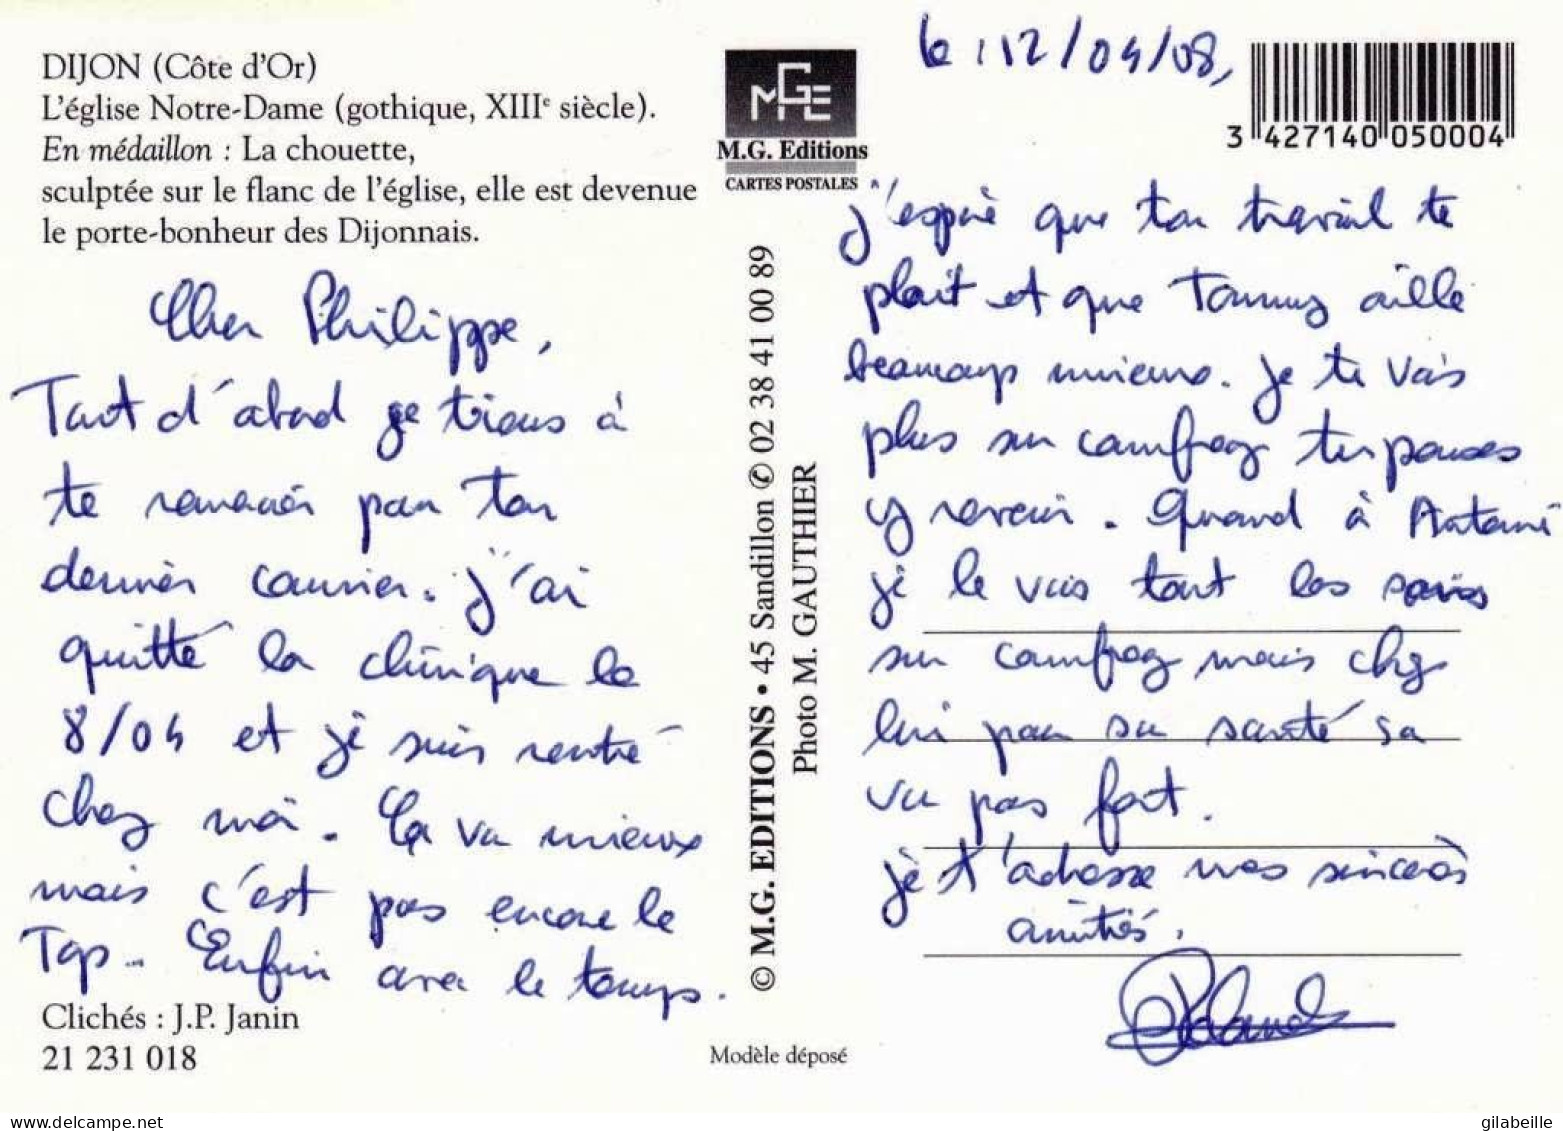 DIJON (Côte d'Or)
L'église Notre-Dame (gothique, XIIIe siècle).
En médaillon : La chouette,
sculptée sur le flanc de l'église, elle est devenue
le porte-bonheur des Dijonnais.
Cher Philippe,
Tout d'abord je tiens à
te remercier par ton
dernier courrier. J'ai
quitté la clinique le
8/04 et je suis rentré
chez moi. Ça va mieux
mais c'est pas encore le
Top... Enfin avec le temps.
Clichés : J.P. Janin
21 231 018
MGE
M.G. Editions
CARTES POSTALES
© M.G. EDITIONS • 45 Sandillon ✆ 02 38 41 00 89
Photo M. GAUTHIER
Modèle déposé
le : 12/04/08,
3 427140 050004
J'espère que ton travail te
plait et que Tommy aille
beaucoup mieux. Je te vois
plus sur camfrog tu penses
y revenir. Quand à Antoine
je le vois tout les soirs
sur camfrog mais chez
lui par sa santé sa
va pas fort.
je t'adresse mes sincères
amitiés.
Roland
gilabeille
delcampe.net